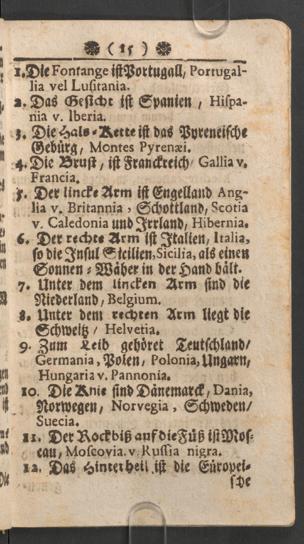 ( 15 )
1. Die Fontange ist Portugall, Portugal-
lia vel Lusitania.
2. Das Gesicht ist Spanien, Hispa-
nia v. Iberia.
3. Die Hals-Kette ist das Pyreneische
Gebürg, Montes Pyrenæi.
4. Die Brust, ist Franckreich/ Gallia v.
Francia.
5. Der lincke Arm ist Engelland Ang-
lia v. Britannia, Schottland, Scotia
v. Caledonia und Irrland, Hibernia.
6. Der rechte Arm ist Italien, Italia,
so die Insul Sicilien, Sicilia, als einen
Sonnen-Wäher in der Hand hält.
7. Unter dem lincken Arm sind die
Niederland, Belgium.
8. Unter dem rechten Arm liegt die
Schweitz/ Helvetia.
9. Zum Leib gehöret Teutschland/
Germania, Polen, Polonia, Ungarn,
Hungaria v. Pannonia.
10. Die Knie sind Dänemarck, Dania,
Norwegen, Norvegia, Schweden/
Suecia.
11. Der Rock biß auf die Füß ist Mos-
cau, Moscovia. v. Russia nigra.
12. Das Hintertheil ist die Europei-
sche